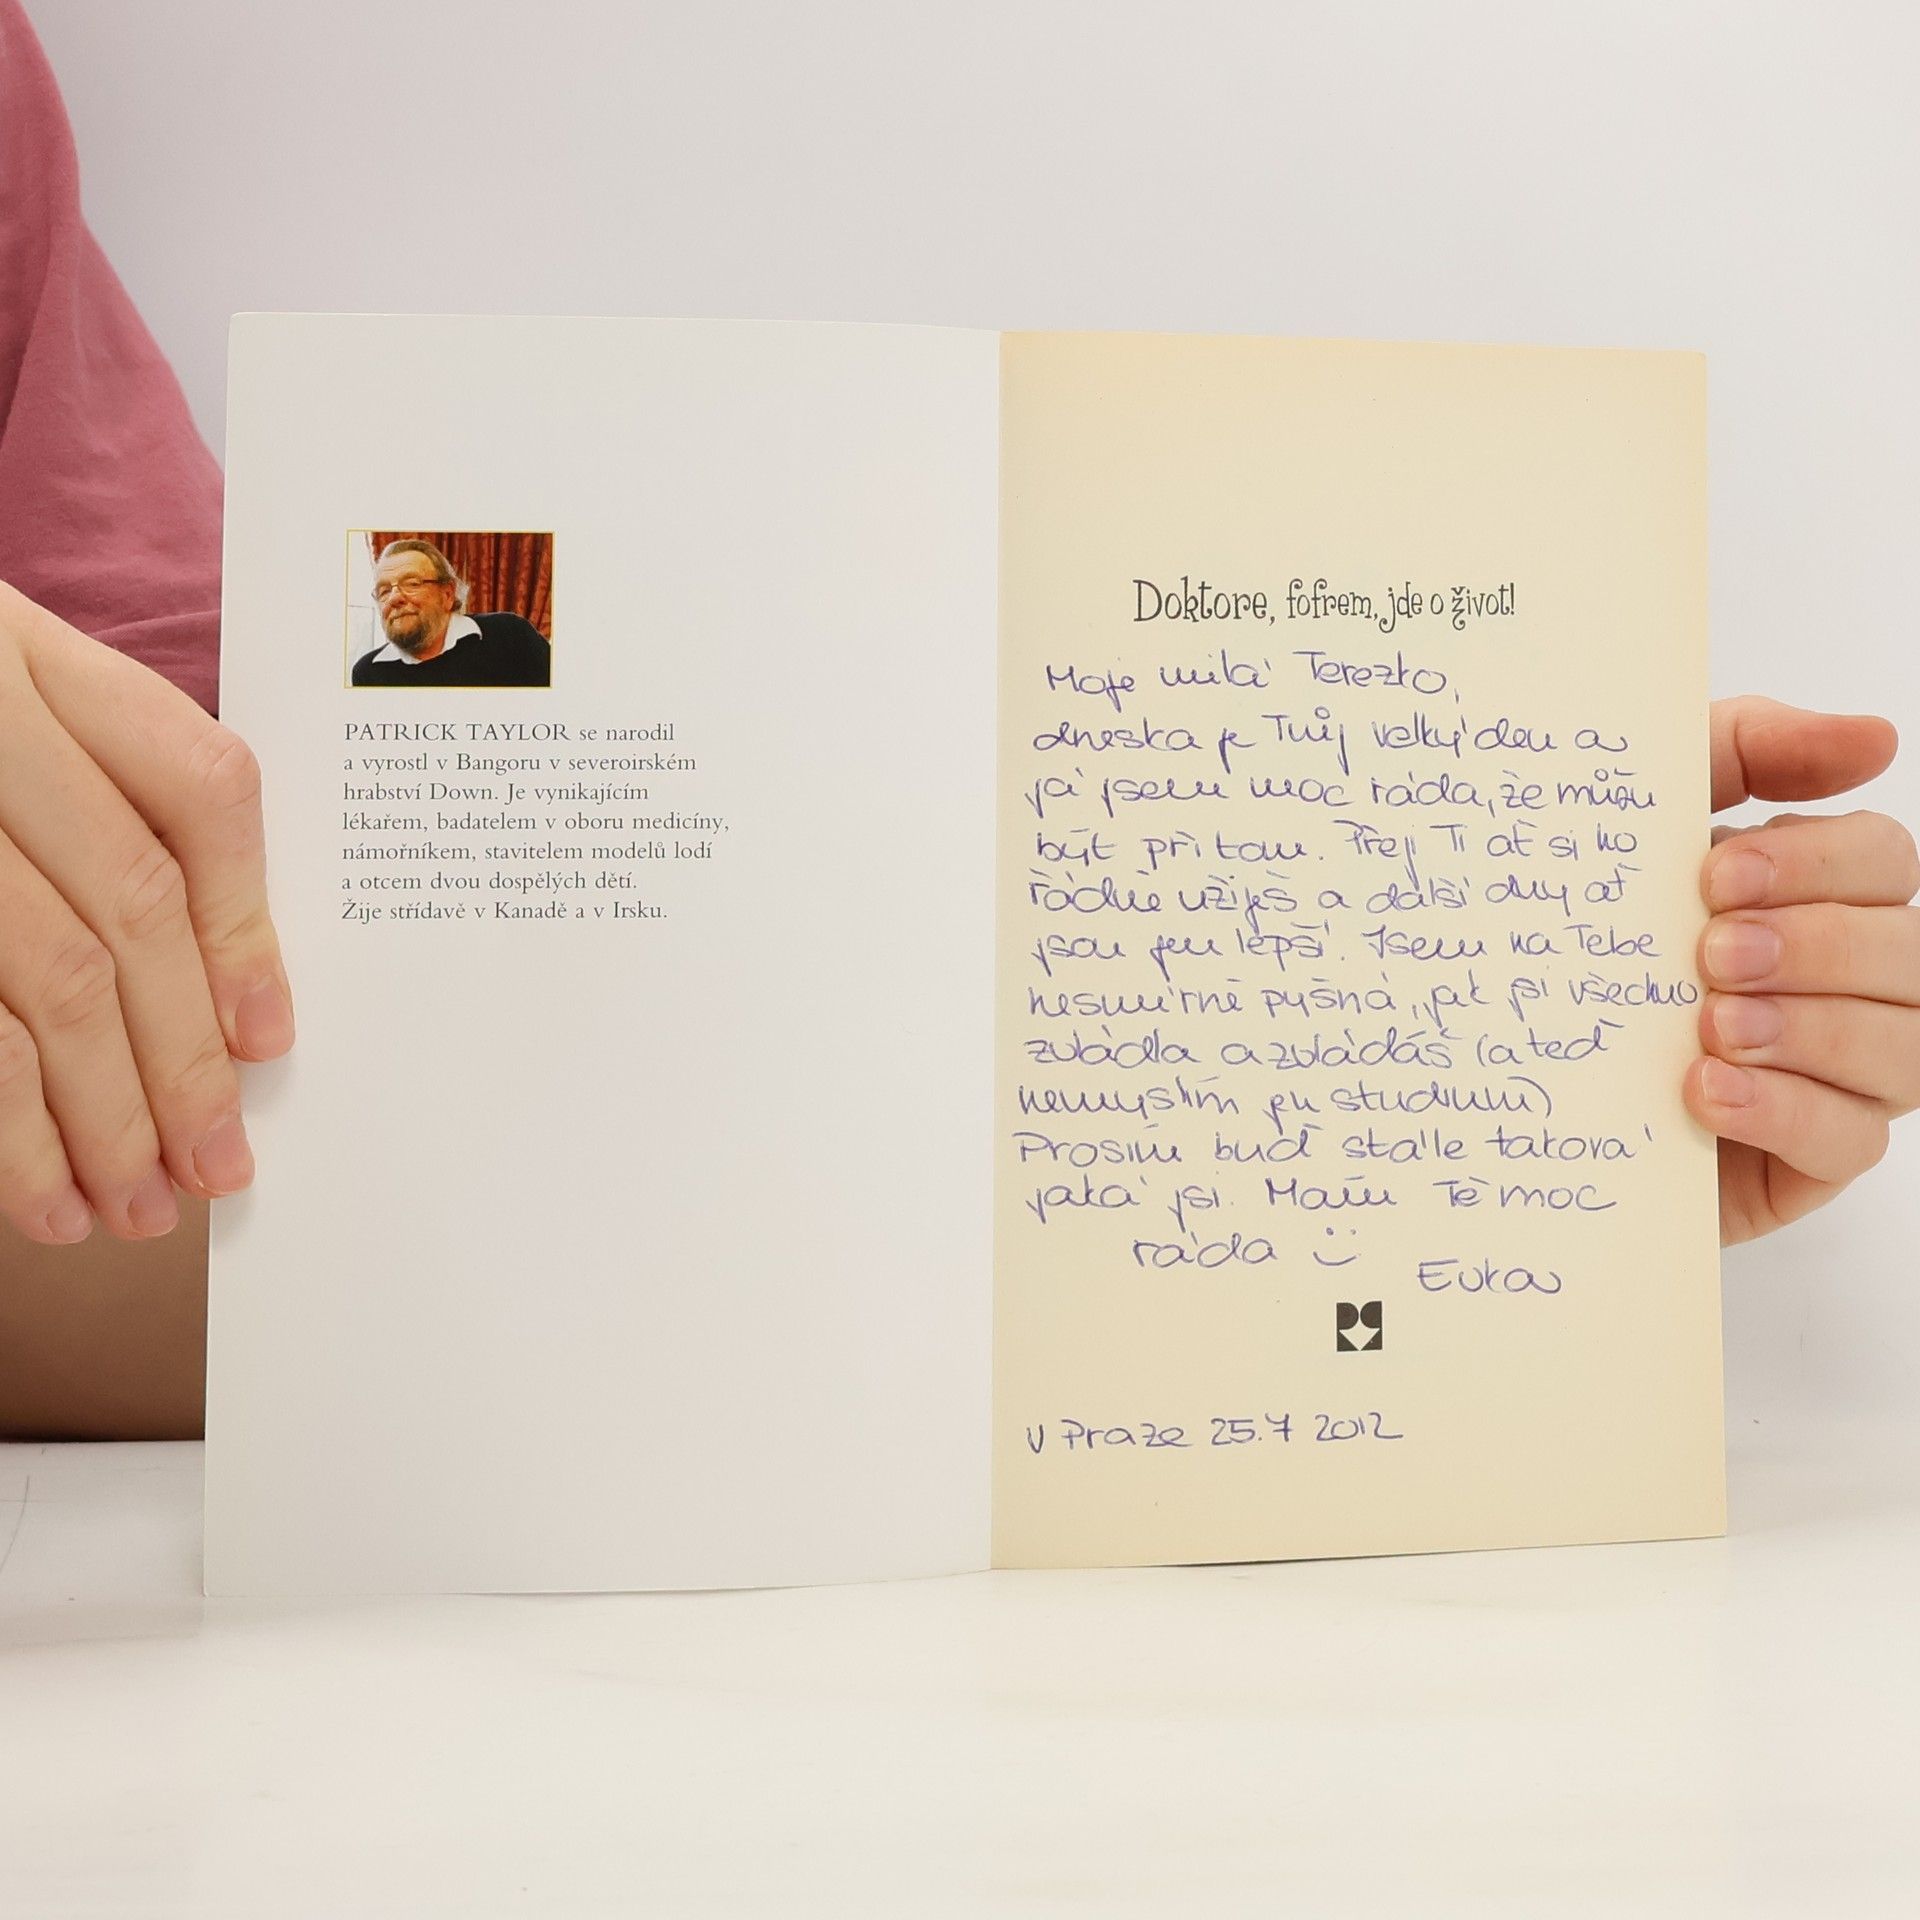 PATRICK TAYLOR se narodil
a vyrostl v Bangoru v severoirském
hrabství Down. Je vynikajícím
lékařem, badatelem v oboru medicíny,
námořníkem, stavitelem modelů lodí
a otcem dvou dospělých dětí.
Žije střídavě v Kanadě a v Irsku.
Doktore, fofrem, jde o život!
Moje milá Terezko,
dneska je Tvůj velký den a
já jsem moc ráda, že můžu
být při tom. Přeji Ti ať si ho
řádně užiješ a další dny ať
jsou jen lepší. Jsem na Tebe
nesmírně pyšná, jak jsi všechno
zvládla a zvládáš (a teď
nemyslím jen studium)
Prosím buď stále taková
jaká jsi. Mám Tě moc
ráda :)
Evka
V Praze 25.7 2012